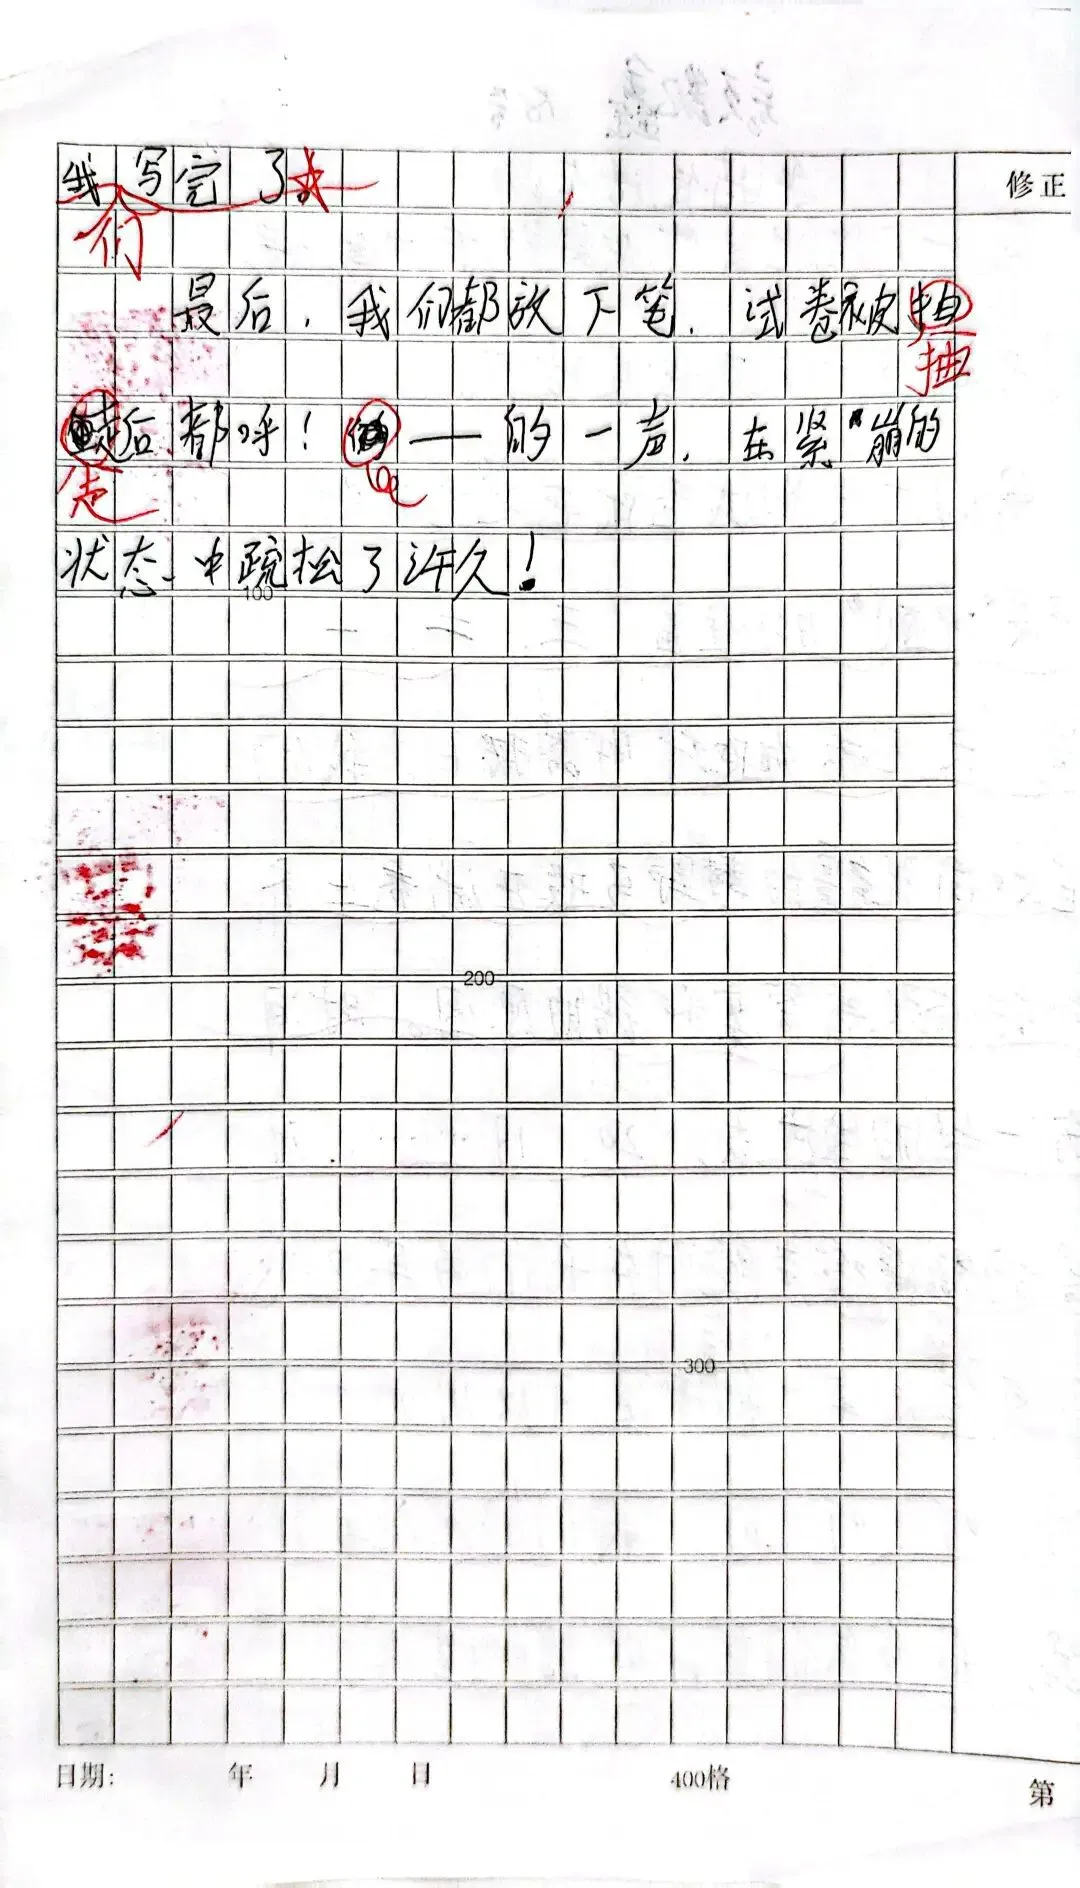 我写完了。
们
最后，我们都放下笔，试卷被抽
抽
走后都呼！——的一声，在紧崩的
走
状态中疏松了许久！
100
200
300
修正
日期： 年 月 日 400格 第